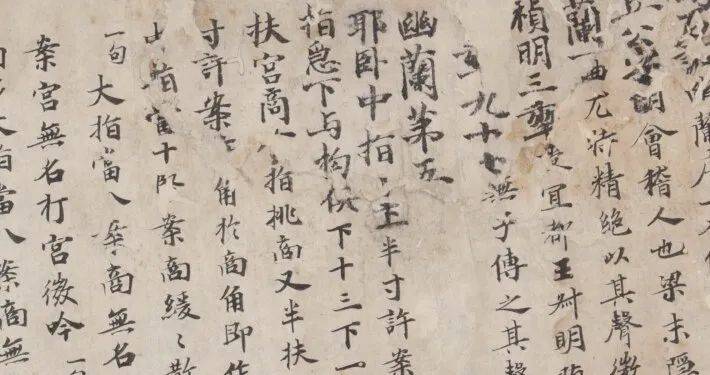 蘭序一名
公字明會稽人也梁末隱
蘭一曲尤特精絕以其聲微
禎明三年授宜都王叔明
九十七無子傳之其聲
幽蘭第五
耶臥中指上半寸許案
指急下与构俱下十三下一
扶宮商食指挑商又半扶
寸許案商角於商角即作
指當十案商緩〻散
一句大指當八案商無名
案宮無名打宮徵吟一句
大指當八案商無